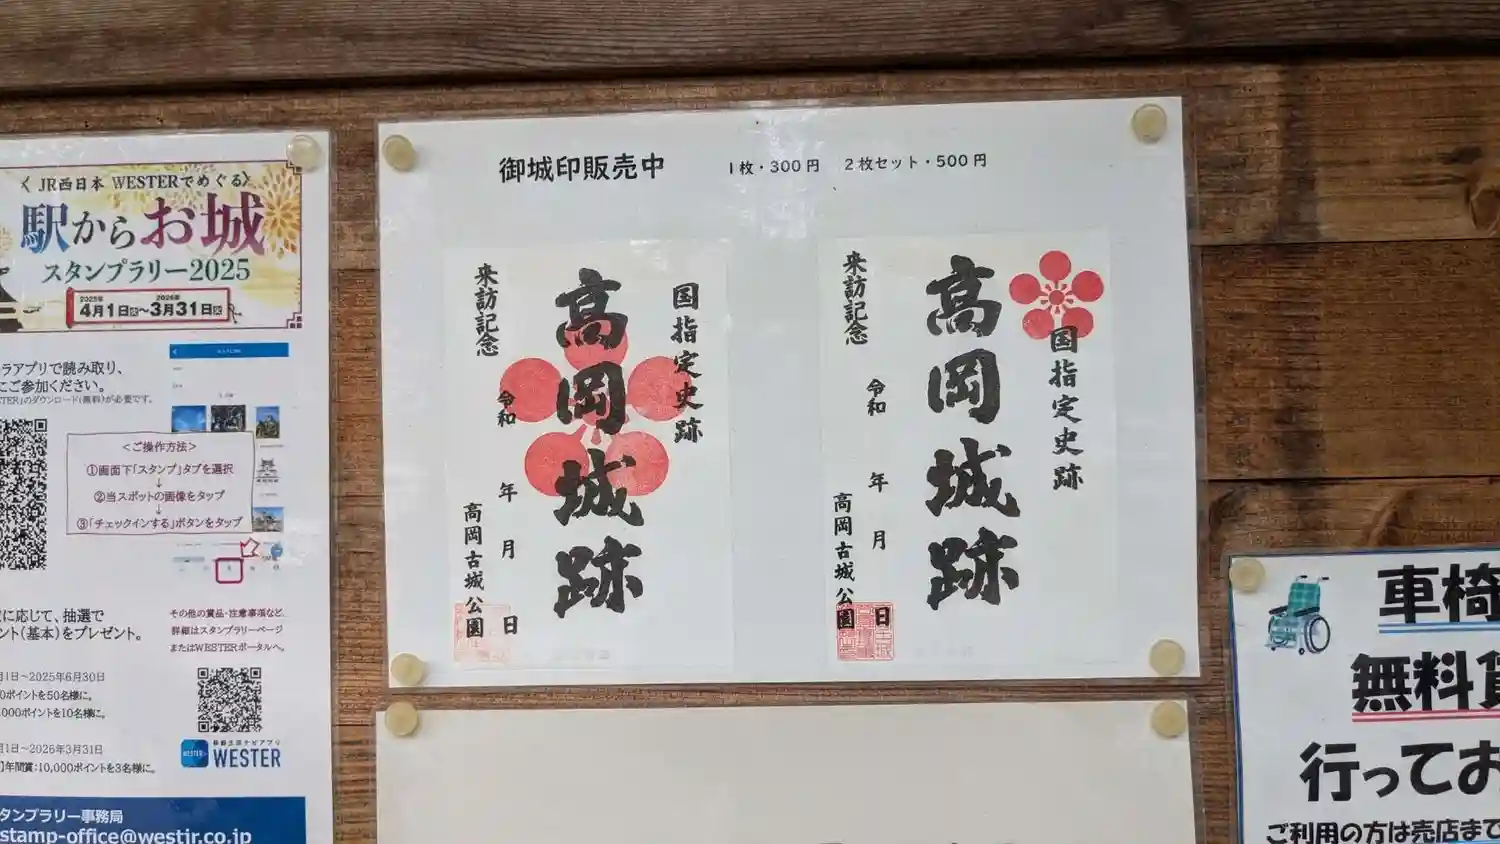 〈 JR西日本 WESTERでめぐる〉
駅からお城
スタンプラリー2025
2025年 2026年
4月1日㊋~3月31日㊋
ラアプリで読み取り、
にご参加ください。
TER」のダウンロード(無料)が必要です。
<ご操作方法>
①画面下「スタンプ」タブを選択
↓
②当スポットの画像をタップ
↓
③「チェックインする」ボタンをタップ
に応じて、抽選で
ント(基本)をプレゼント。
その他の賞品・注意事項など、
詳細はスタンプラリーページ
またはWESTERポータルへ。
月1日~2025年6月30日
0ポイントを50名様に。
,000ポイントを10名様に。
月1日~2026年3月31日
]年間賞:10,000ポイントを3名様に。
移動生活ナビアプリ
WESTER
タンプラリー事務局
stamp-office@westjr.co.jp
御城印販売中 1枚・300円 2枚セット・500円
国指定史跡
高岡城跡
来訪記念
令和 年 月 日
高岡古城公園
国指定史跡
高岡城跡
来訪記念
令和 年 月 日
高岡古城公園
車椅
無料貸
行ってお
ご利用の方は売店まで